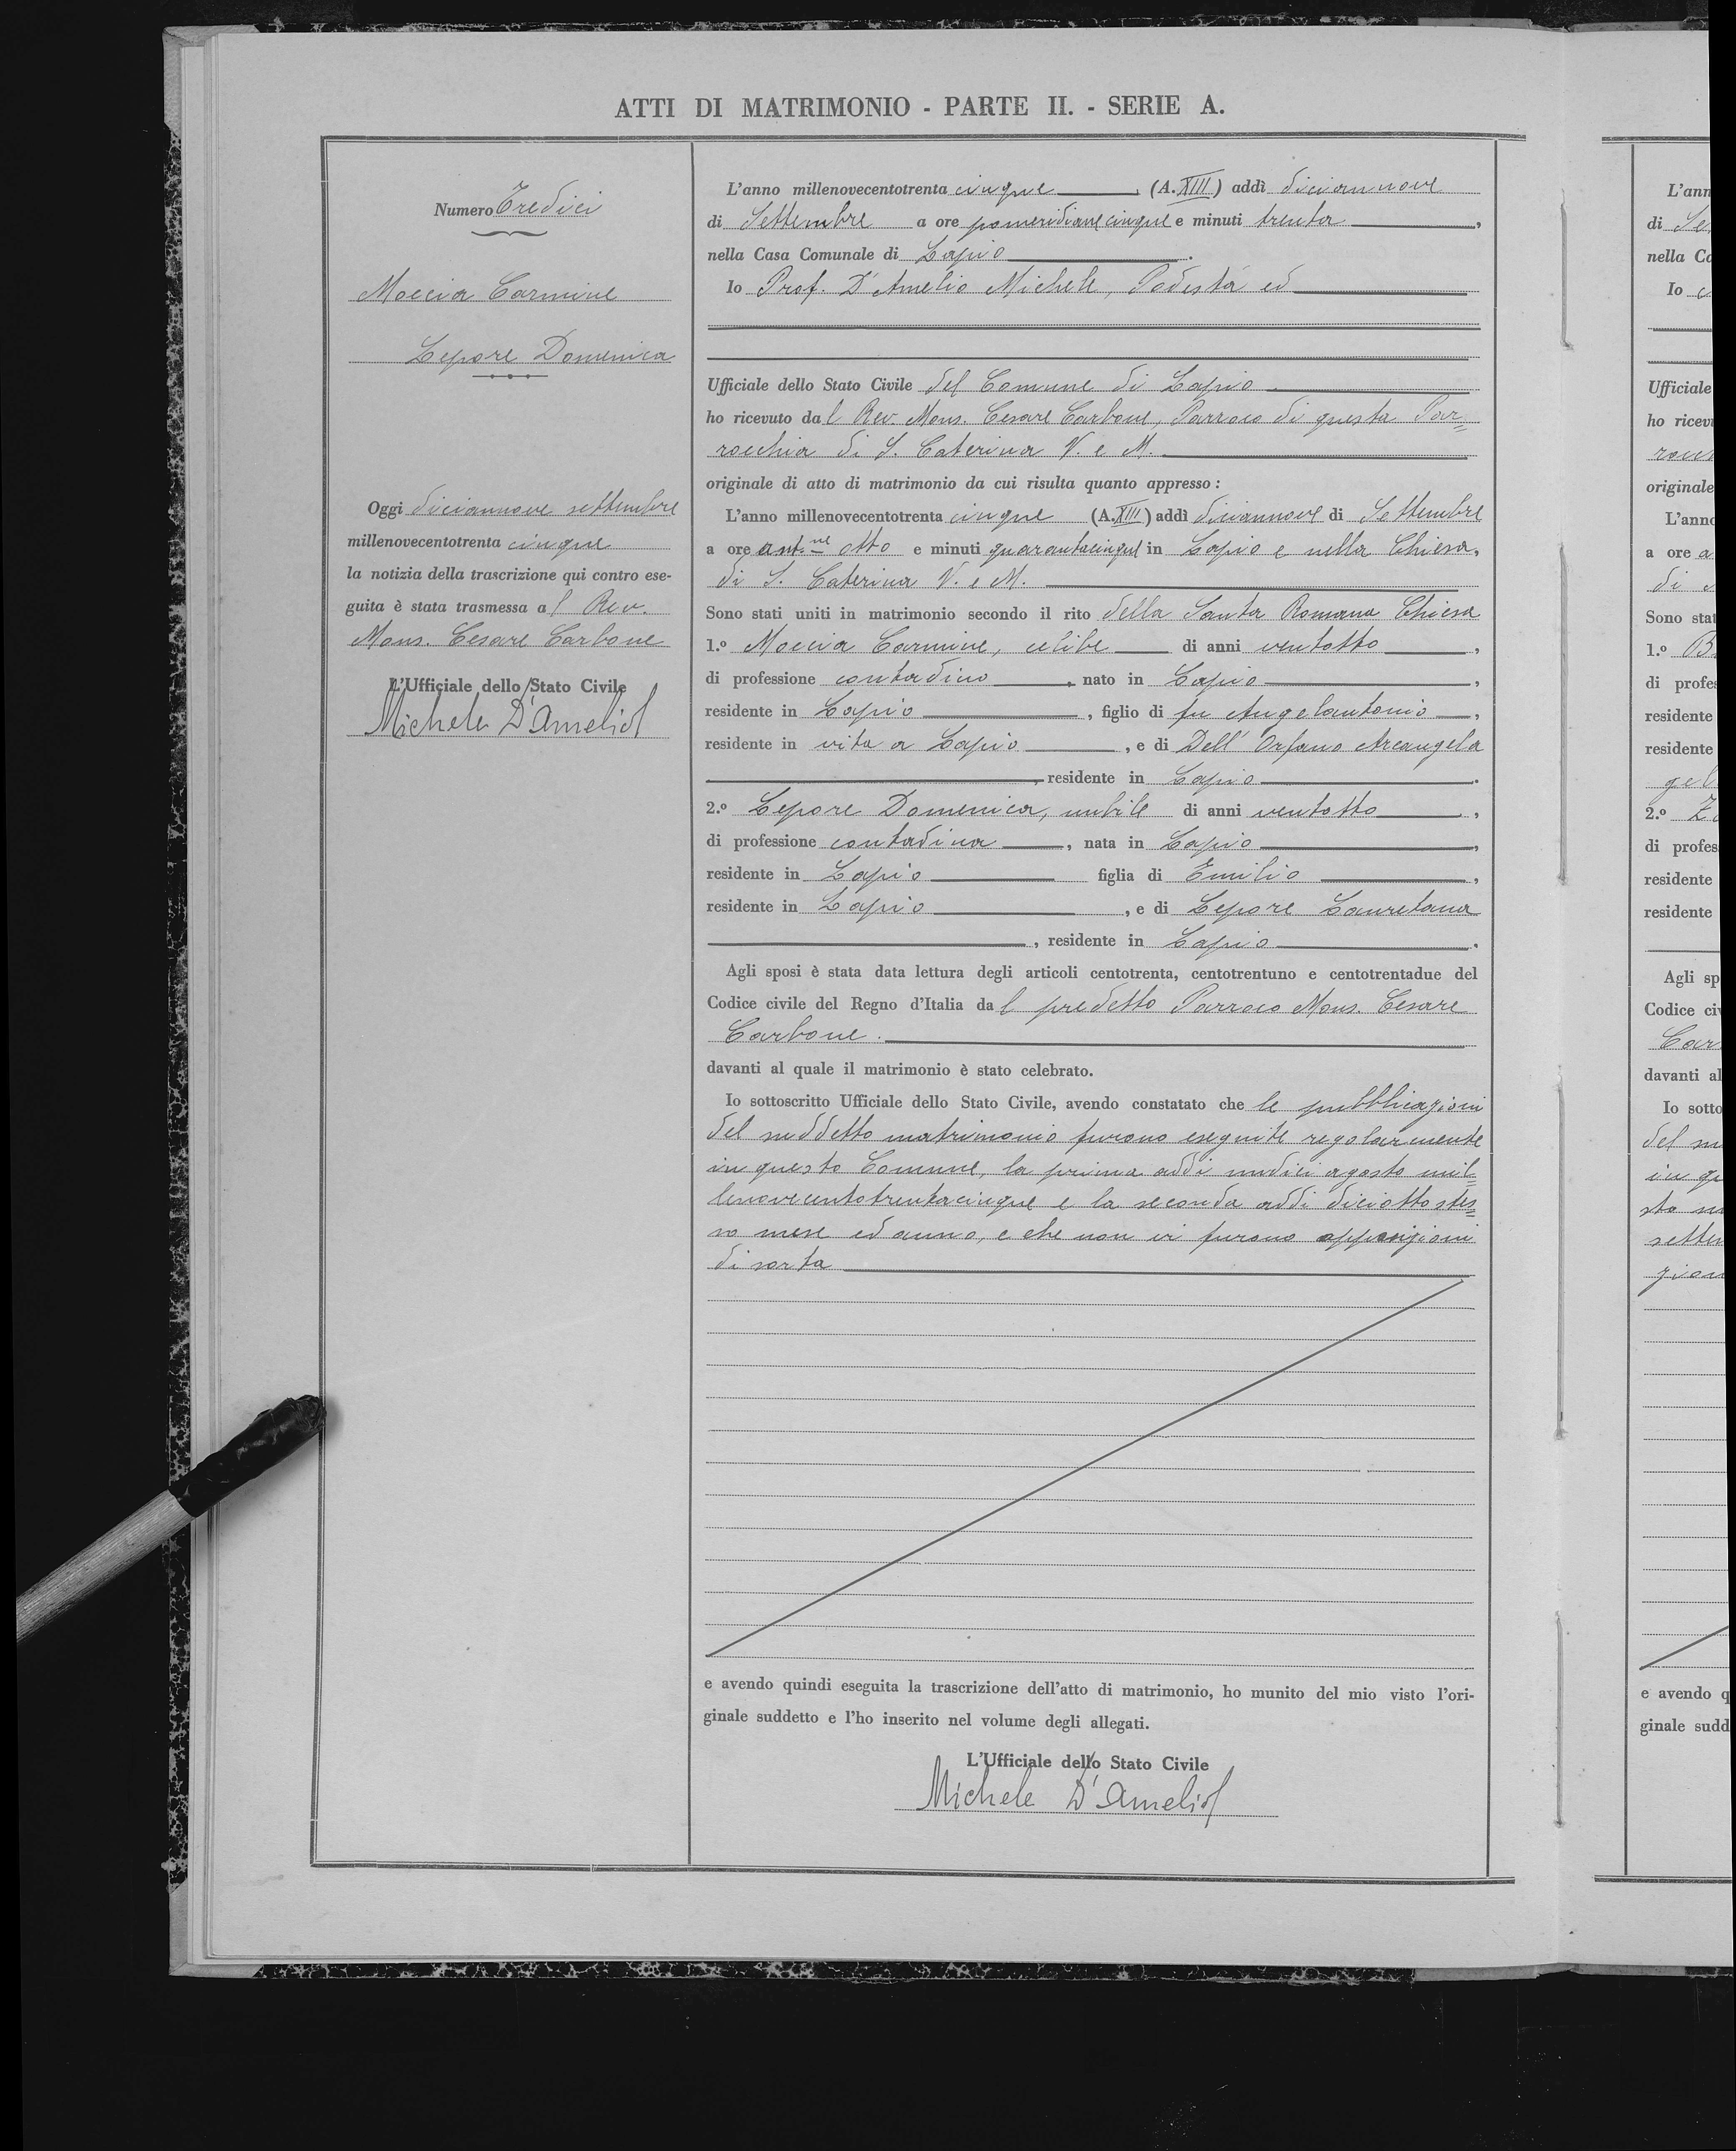 ATTI DI MATRIMONIO - PARTE II. - SERIE A.
Numero Tredici
Moccia Carmine
Lepore Domenica
Oggi diciannove settembre
millenovecentotrenta cinque
la notizia della trascrizione qui contro ese-
guita è stata trasmessa al Rev.
Mons. Cesare Carbone
L'Ufficiale dello Stato Civile
Michele D'Amelio
L'anno millenovecentotrenta cinque (A. XIII) addì diciannove
di Settembre a ore pomeridiane cinque e minuti trenta,
nella Casa Comunale di Lapio.
Io Prof. D'Amelio Michele, Podestà ed
Ufficiale dello Stato Civile del Comune di Lapio
ho ricevuto dal Rev. Mons. Cesare Carbone, Parroco di questa Par=
rocchia di S. Caterina V. e M.
originale di atto di matrimonio da cui risulta quanto appresso:
L'anno millenovecentotrenta cinque (A. XIII) addì diciannove di Settembre
a ore ant.ne otto e minuti quarantacinque in Lapio e nella Chiesa,
di S. Caterina V. e M.
Sono stati uniti in matrimonio secondo il rito della Santa Romana Chiesa
1.º Moccia Carmine, celibe di anni ventotto,
di professione contadino, nato in Lapio,
residente in Lapio, figlio di fu Angelantonio,
residente in vita a Lapio, e di Dell'Orfano Arcangela
, residente in Lapio.
2.º Lepore Domenica, nubile di anni ventotto,
di professione contadina, nata in Lapio,
residente in Lapio figlia di Emilio,
residente in Lapio, e di Lepore Lauretana
, residente in Lapio.
Agli sposi è stata data lettura degli articoli centotrenta, centotrentuno e centotrentadue del
Codice civile del Regno d'Italia dal predetto Parroco Mons. Cesare
Carbone.
davanti al quale il matrimonio è stato celebrato.
Io sottoscritto Ufficiale dello Stato Civile, avendo constatato che le pubblicazioni
del suddetto matrimonio furono eseguite regolarmente
in questo Comune, la prima addì undici agosto mil=
lenovecentotrentacinque e la seconda addì diciotto stes=
so mese ed anno, e che non vi furono opposizioni
di sorta
e avendo quindi eseguita la trascrizione dell'atto di matrimonio, ho munito del mio visto l'ori-
ginale suddetto e l'ho inserito nel volume degli allegati.
L'Ufficiale dello Stato Civile
Michele D'Amelio
L'ann
di Se
nella Co
Io
Ufficiale
ho ricev
originale
L'anno
a ore a
di
Sono stat
1.º
di profes
residente
residente
gel
2.º
di profes
residente
residente
Agli sp
Codice civ
Car
davanti al
Io sotto
del su
in qu
sto
settem
zion
e avendo q
ginale sudd